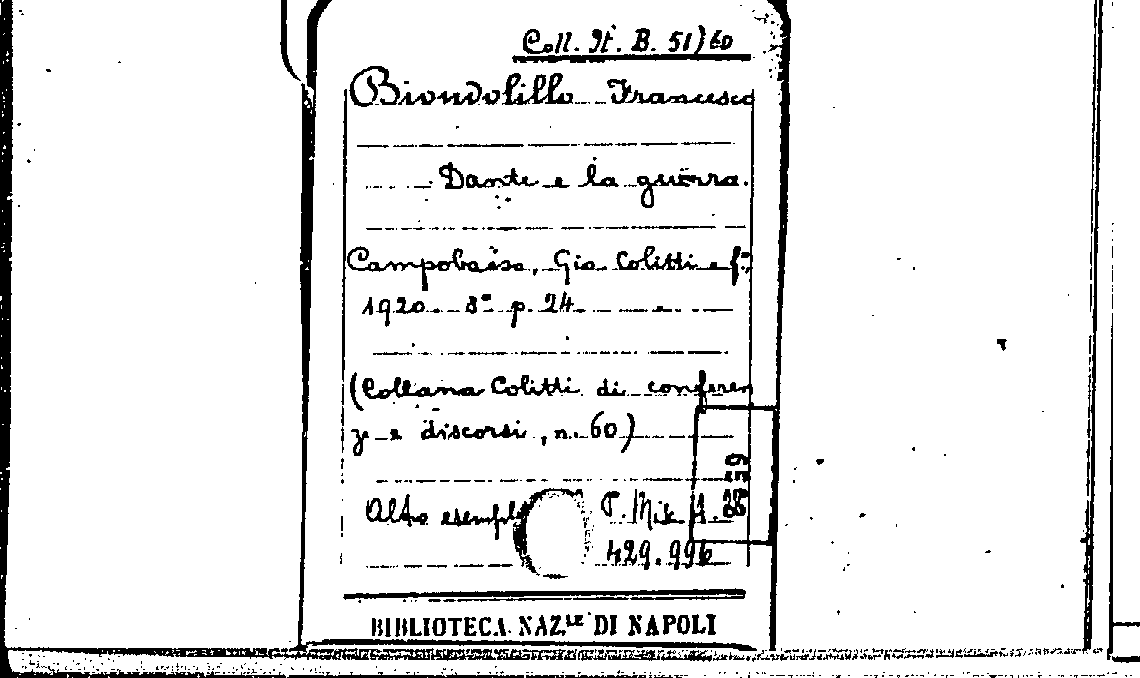 Coll. It. B. 51)60
Biondolillo Francesco
Dante e la guerra.
Campobasso, Gio. Colitti e f.º
1920. 8º p. 24
(Collana Colitti di conferen
ze e discorsi, n. 60)
Altro esempl
429.996
BIBLIOTECA NAZ.LE DI NAPOLI